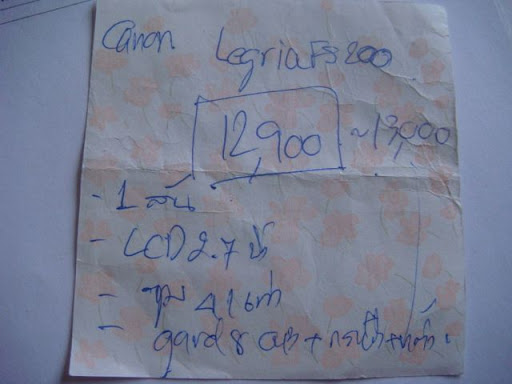 Canon Legria FS200
12,900 ~13,000
- 1 ล้าน
- LCD 2.7 นิ้ว
- ซูม 41 เท่า
- 8 + กระเป๋า +